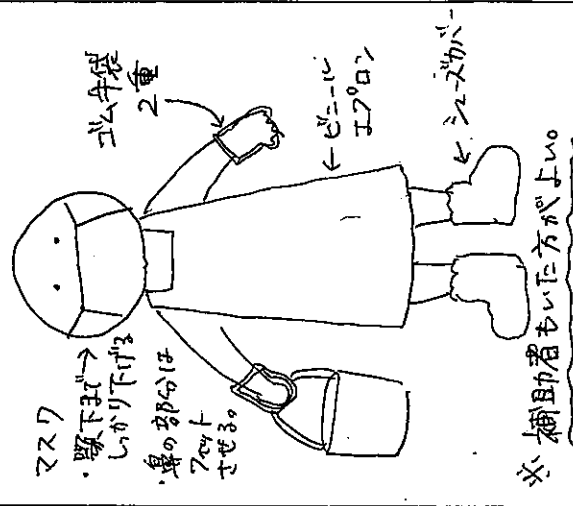 マスク
・顎下まで→
しっかり下げる
・鼻の部分は
フィット
させる。
ゴム手袋
2重
←ビニール
エプロン
←シューズカバー
※補助者もいた方がよい。